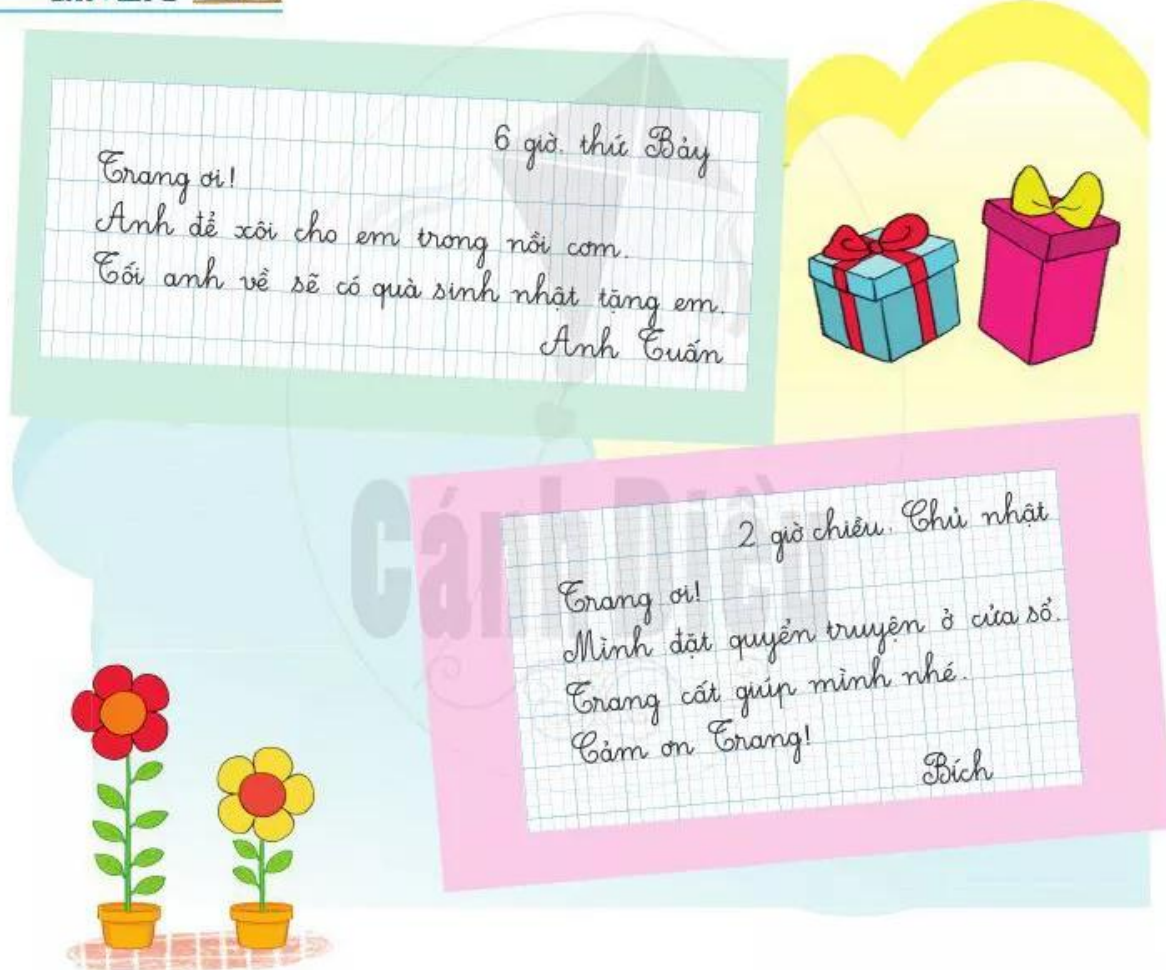 6 giờ. thứ Bảy
Trang ơi!
Anh để xôi cho em trong nồi cơm.
Tối anh về sẽ có quà sinh nhật tặng em.
Anh Tuấn
Cánh Diều
2 giờ chiều. Chủ nhật
Trang ơi!
Mình đặt quyển truyện ở cửa sổ.
Trang cất giúp mình nhé.
Cảm ơn Trang!
Bích